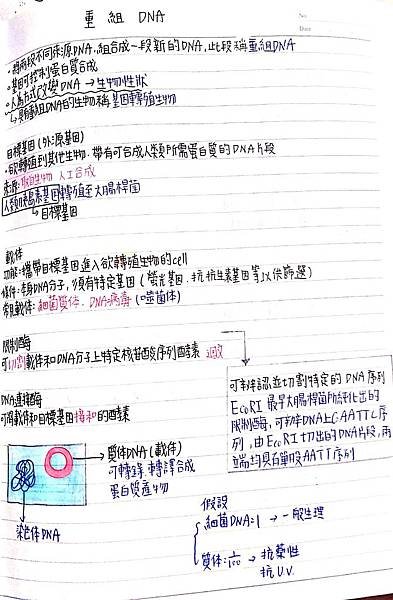 重組 DNA
No.
Date
·將兩段不同來源DNA,組合成一段新的DNA,此段稱重組DNA
·基因可控制蛋白質合成
·人為方式改變DNA→生物性狀
↳具有重組DNA的生物稱基因轉殖生物
目標基因(外源基因)
·欲轉殖到其他生物.帶有可合成人類所需蛋白質的DNA片段
來源:取自生物.人工合成
人類胰島素基因轉殖至大腸桿菌
↳目標基因
載体
功能:攜帶目標基因進入欲轉殖生物的cell
條件:本身DNA分子,須有特定基因(螢光基因.抗抗生素基因等,以供篩選)
常見載体:細菌質体.DNA病毒(噬菌体)
限制酶
可切割載体和DNA分子上特定核苷酸序列的酵素
DNA連接酶
可將載体和目標基因接和的酵素
可辨認並切割特定的DNA序列
EcoRI 最早大腸桿菌所純化出的
限制酶,可辨DNA上GAATTC序
列,由EcoRI切出的DNA片段,兩
端均具有單股AATT序列
質体DNA(載体)
可轉錄.轉譯合成
蛋白質產物
染色体DNA
假設
細菌DNA:1→一般生理
質体:1/100→抗藥性
抗U.V.